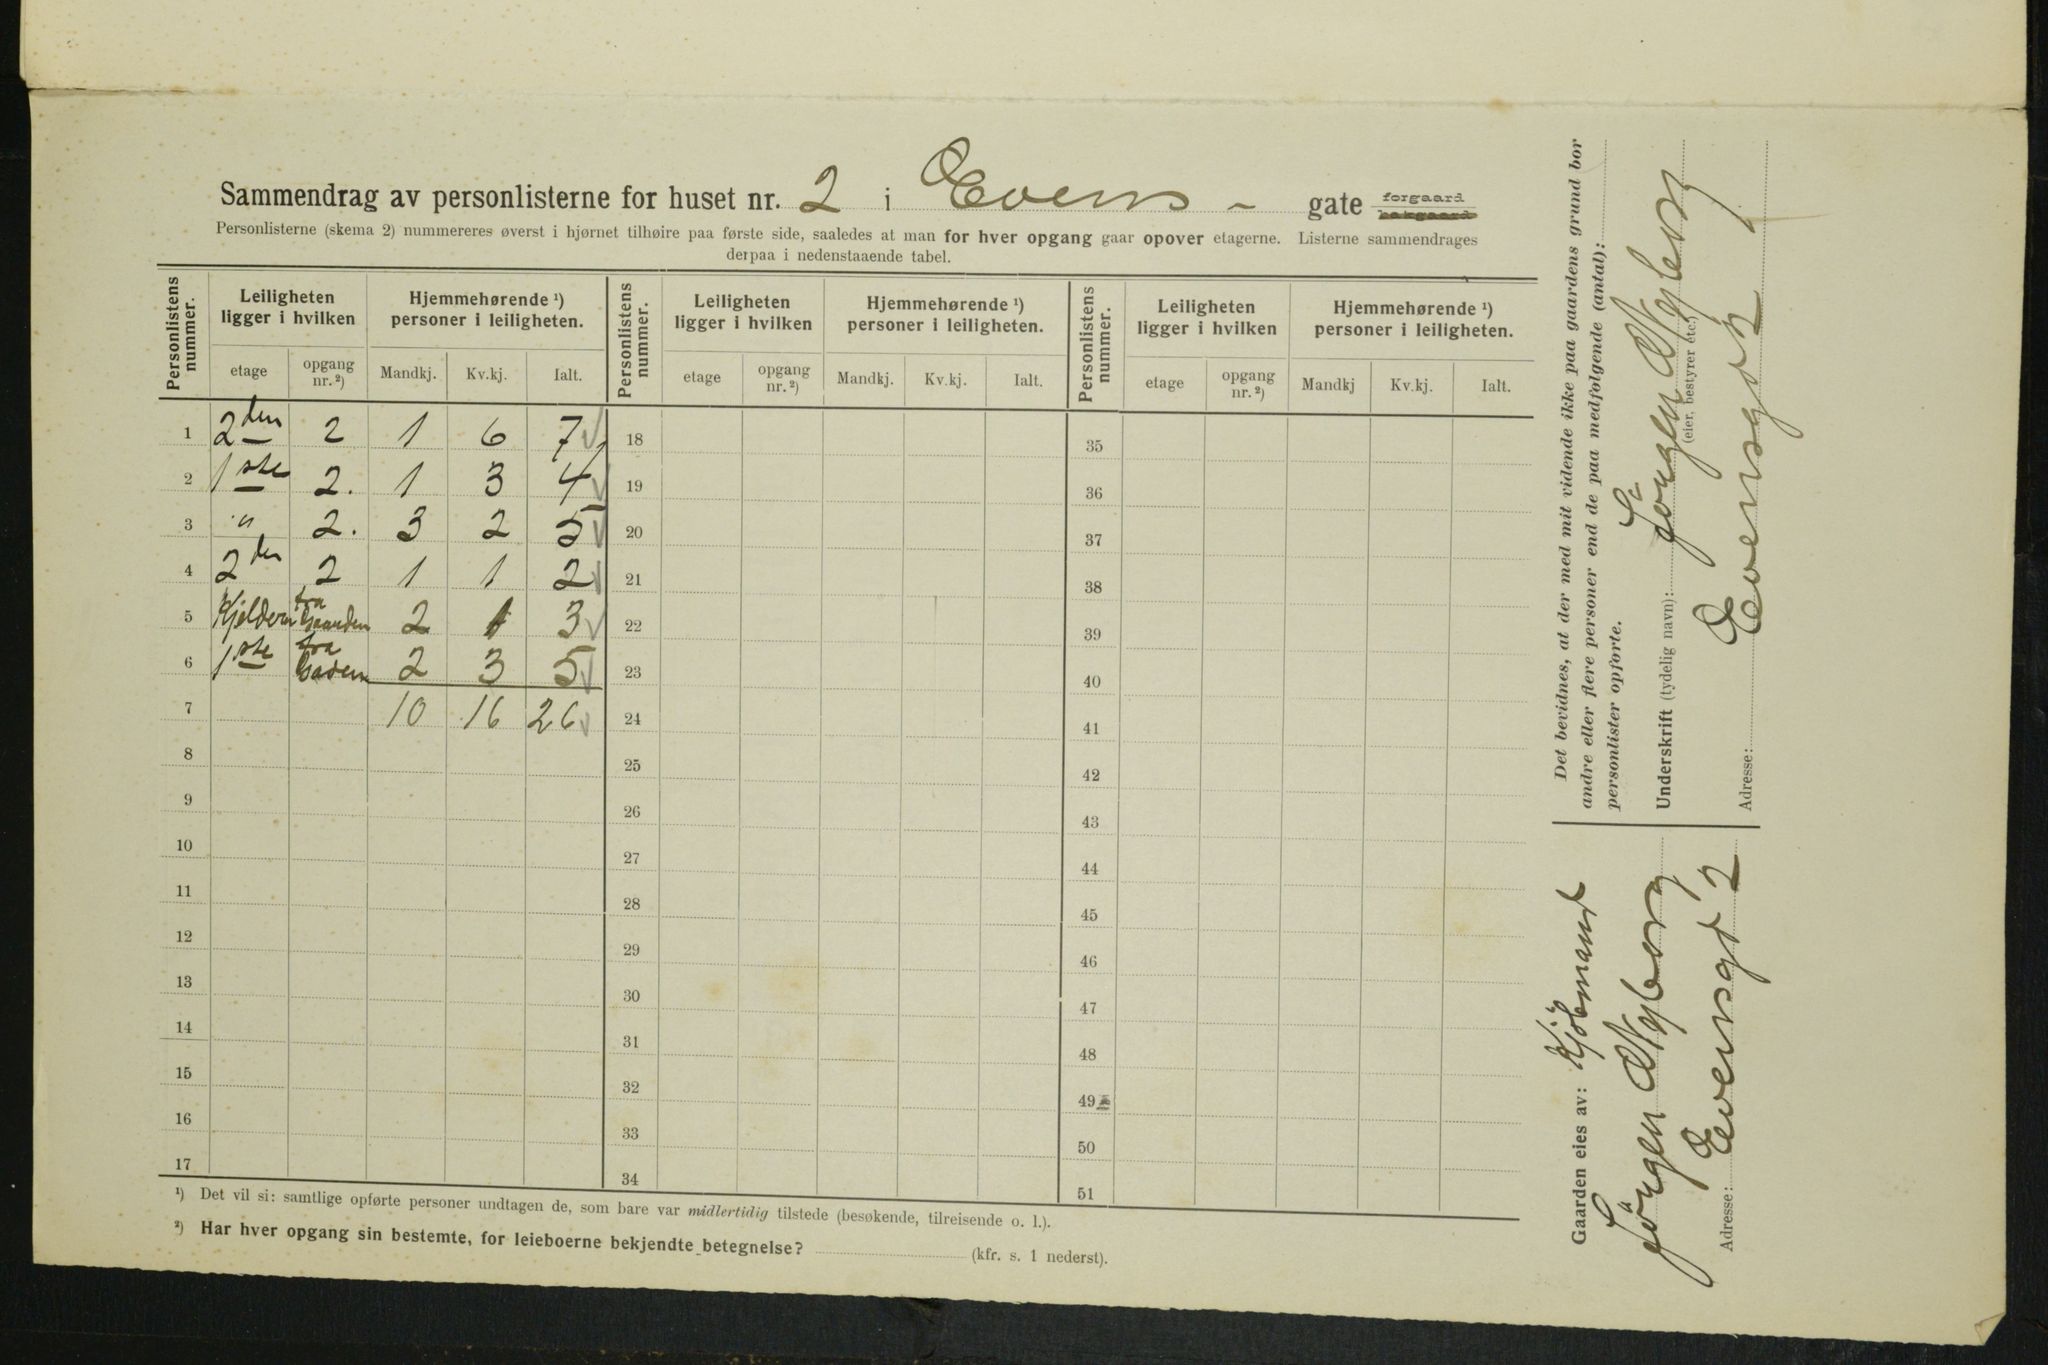 Sammendrag av personlisterne for huset nr. 2 i Evens - gate forgaard
Personlisterne (skema 2) nummereres øverst i hjørnet tilhøire paa første side, saaledes at man for hver opgang gaar opover etagerne. Listerne sammendrages
derpaa i nedenstaaende tabel.
Personlistens nummer. Leiligheten ligger i hvilken Hjemmehørende ¹) personer i leiligheten. Personlistens nummer. Leiligheten ligger i hvilken Hjemmehørende ¹) personer i leiligheten. Personlistens nummer. Leiligheten ligger i hvilken Hjemmehørende ¹) personer i leiligheten.
etage opgang nr. ²) Mandkj. Kv.kj. Ialt. etage opgang nr. ²) Mandkj. Kv.kj. Ialt. etage opgang nr. ²) Mandkj Kv.kj. Ialt.
1 2den 2 1 6 7 18 35
2 1ste 2. 1 3 4 19 36
3 " 2. 3 2 5 20 37
4 2den 2 1 1 2 21 38
5 Kjelderen fra Gaarden 2 1 3 22 39
6 1ste fra Gaden 2 3 5 23 40
7 10 16 26 24 41
8 25 42
9 26 43
10 27 44
11 28 45
12 29 46
13 30 47
14 31 48
15 32 49
16 33 50
17 34 51
¹) Det vil si: samtlige opførte personer undtagen de, som bare var midlertidig tilstede (besøkende, tilreisende o. l.).
²) Har hver opgang sin bestemte, for leieboerne bekjendte betegnelse? (kfr. s. 1 nederst).
Det bevidnes, at der med mit vidende ikke paa gaardens grund bor
andre eller flere personer end de paa medfølgende (antal):
personlister opførte.
Underskrift (tydelig navn): Jörgen Nyberg
(eier, bestyrer etc.)
Adresse: Evensgt 2
Gaarden eies av: Kjöbmand
Jörgen Nyberg
Adresse: Evensgt 2